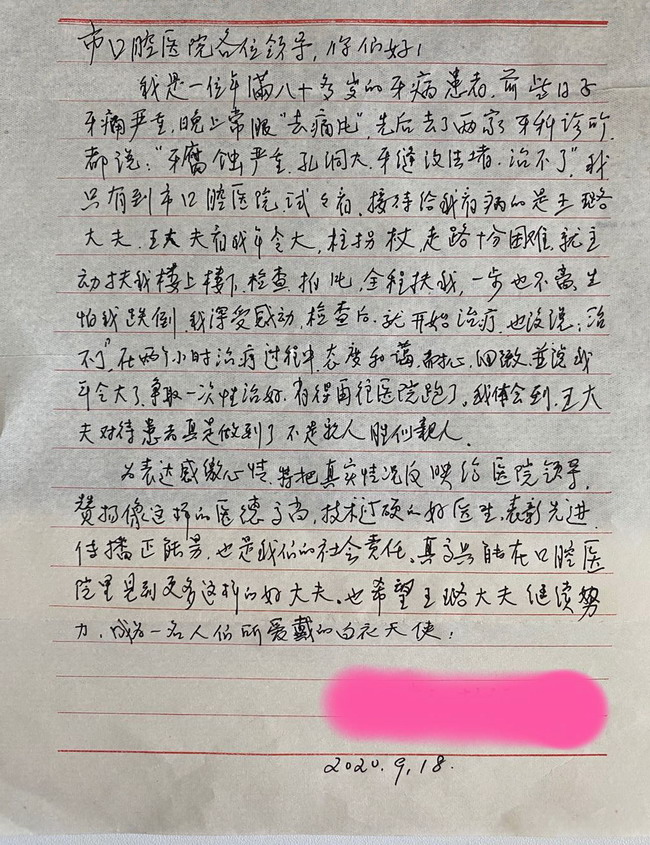 市口腔医院各位领导，你们好！
我是一位年满八十多岁的牙病患者，前些日子
牙痛严重，晚上常服“去痛片”，先后去了两家牙科诊所
都说：“牙腐蚀严重，孔洞大，牙缝没法堵，治不了”，我
只有到市口腔医院试试看，接待给我看病的是王璐
大夫，王大夫看我年令大，柱拐杖，走路十分困难，就主
动扶我楼上楼下，检查拍片，全程扶我，一步也不离，生
怕我跌倒，我深受感动，检查后，就开始治疗，也没说：治
不了”，在两个小时治疗过程中，态度和蔼，耐心，细致，并说我
年令大了，争取一次性治好，省得再往医院跑了。我体会到，王大
夫对待患者真是做到了不是亲人胜似亲人。
为表达感激心情，特把真实情况反映给医院领导，
赞扬像这样的医德高尚，技术过硬的好医生，表彰先进，
传播正能量，也是我们的社会责任。真高兴能在口腔医
院里见到更多这样的好大夫。也希望王璐大夫继续努
力，成为一名人们所爱戴的白衣天使！
2020.9.18.